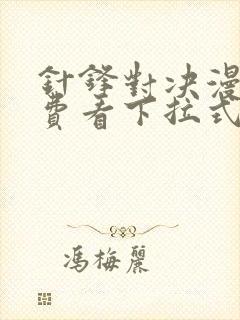 針鋒對决漫
費看下拉式
馮梅麗